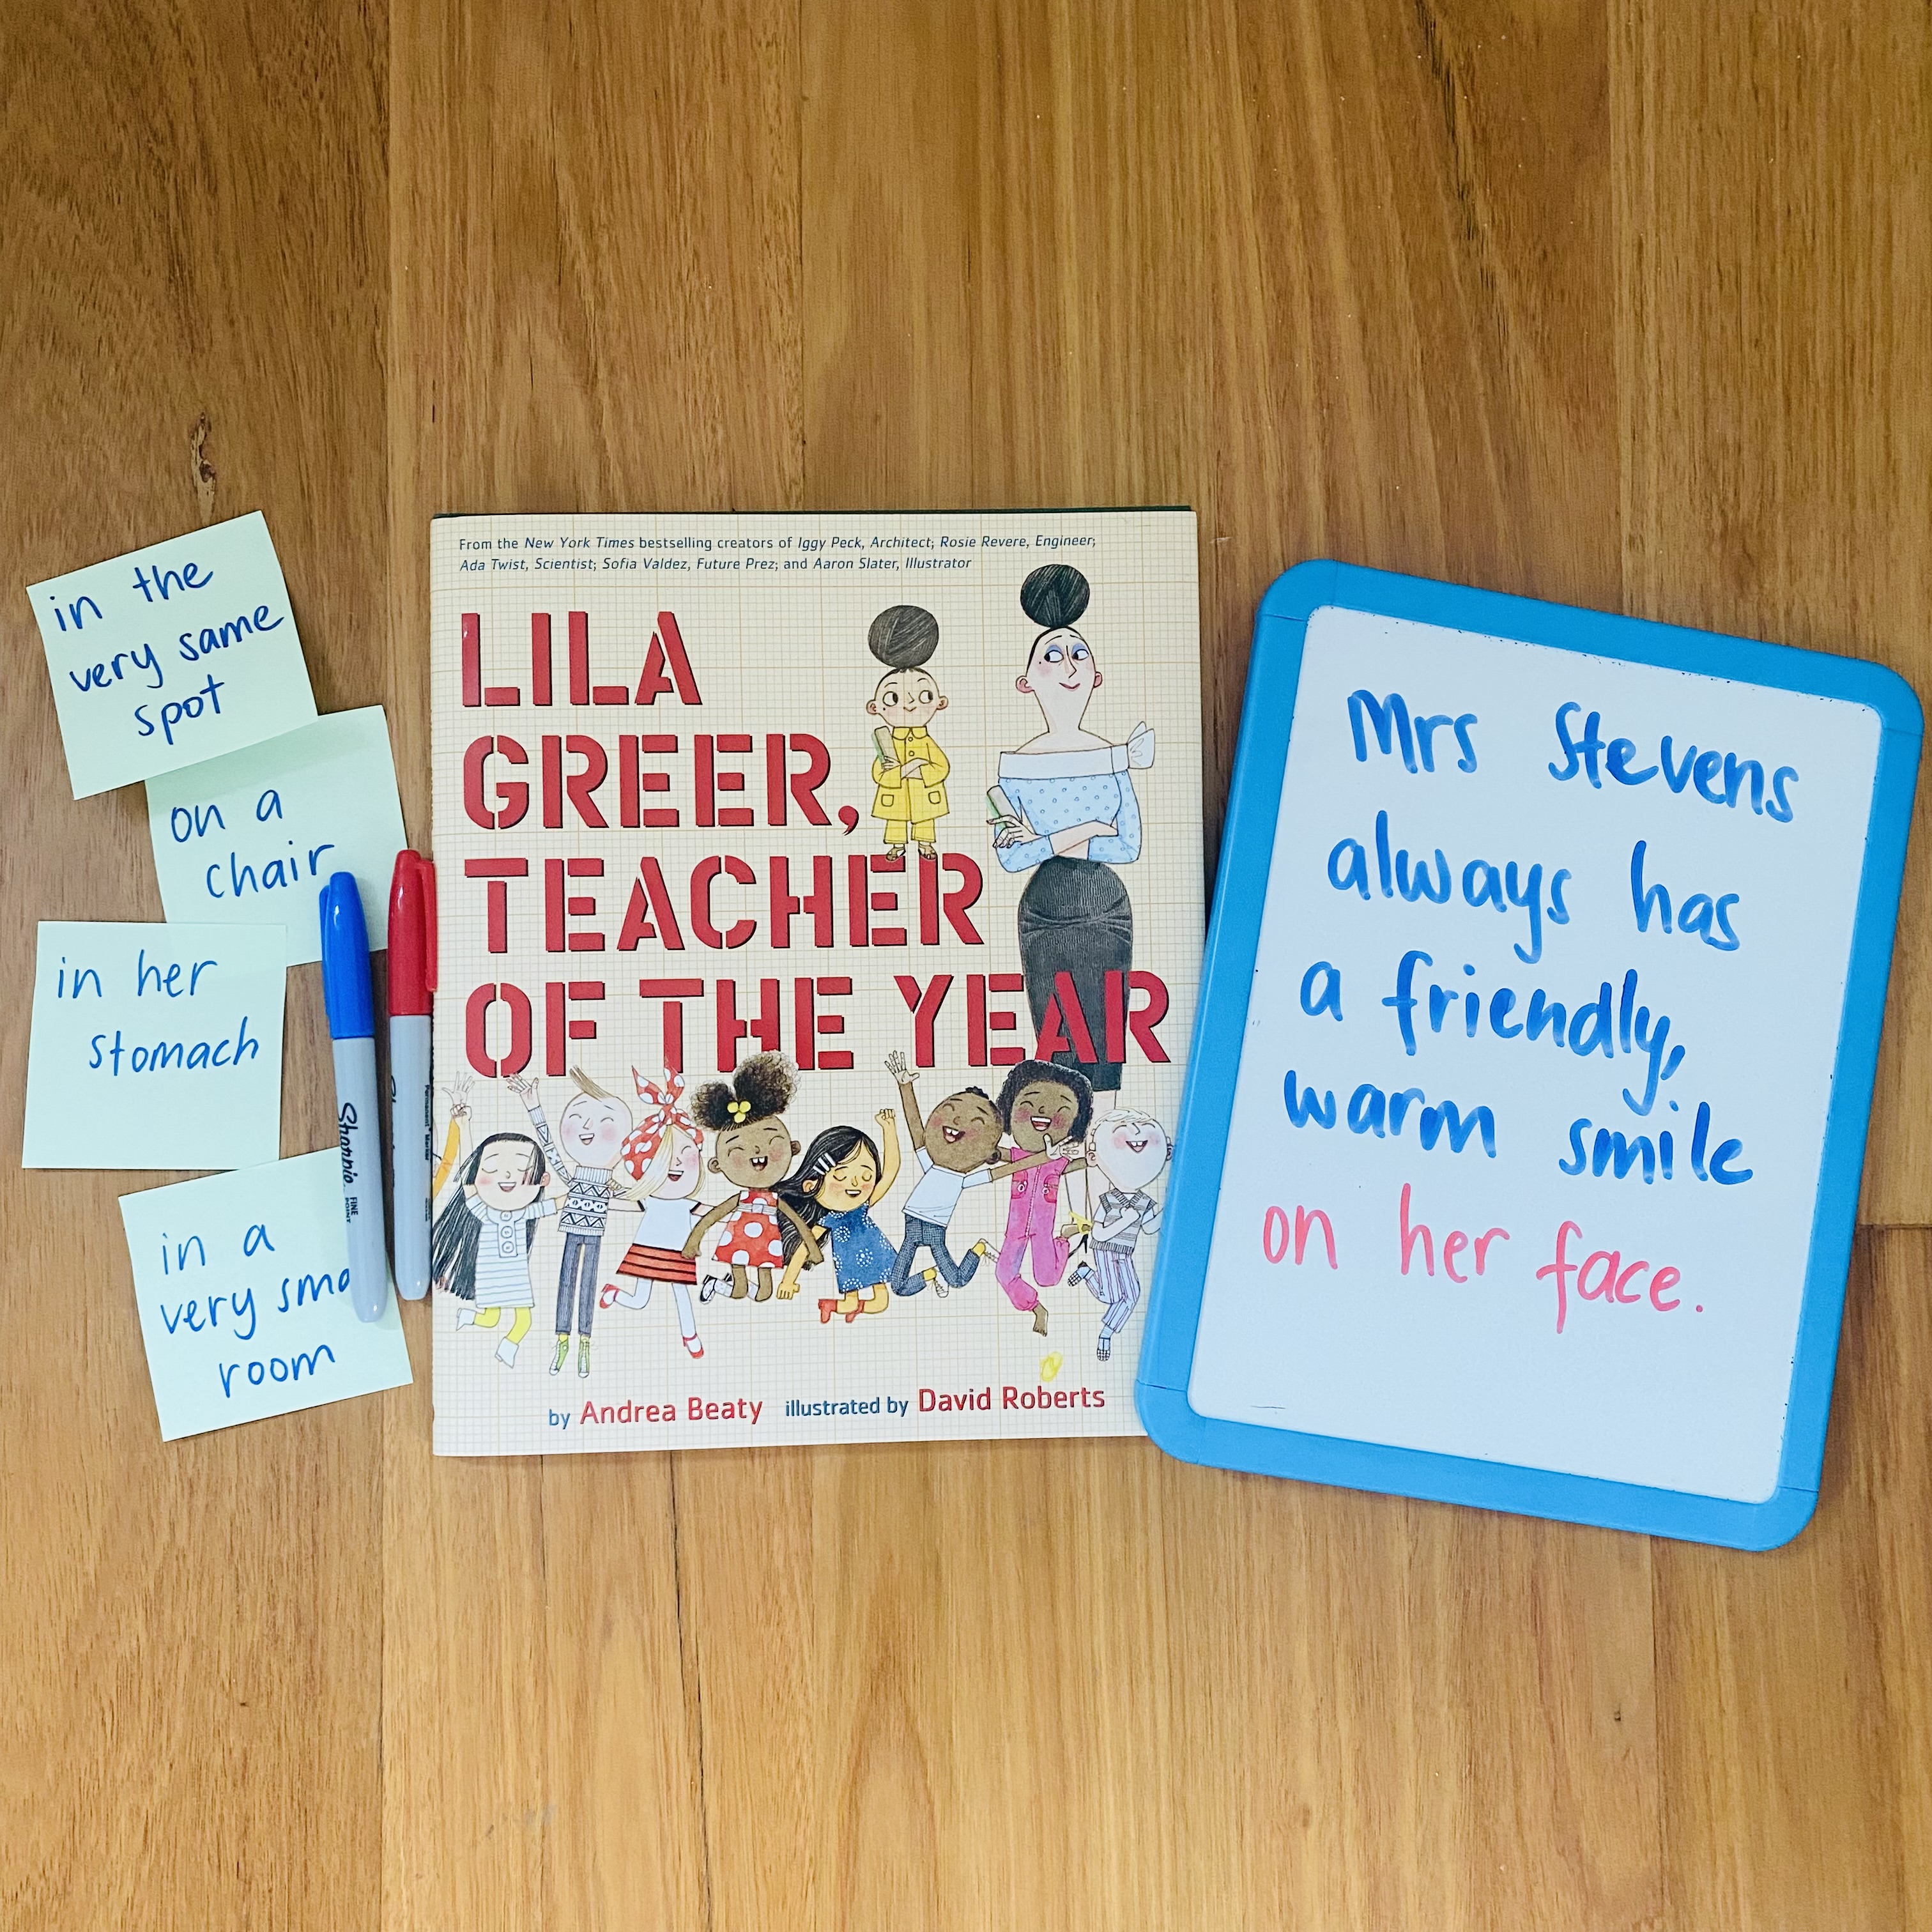 in the
very same
spot
on a
chair
in her
stomach
in a
very
room
Sharpie
FINE
POINT
From the New York Times bestselling creators of Iggy Peck, Architect; Rosie Revere, Engineer;
Ada Twist, Scientist; Sofia Valdez, Future Prez; and Aaron Slater, Illustrator
LILA
GREER,
TEACHER
OF THE YEAR
by Andrea Beaty illustrated by David Roberts
Mrs Stevens
always has
a friendly,
warm smile
on her face.